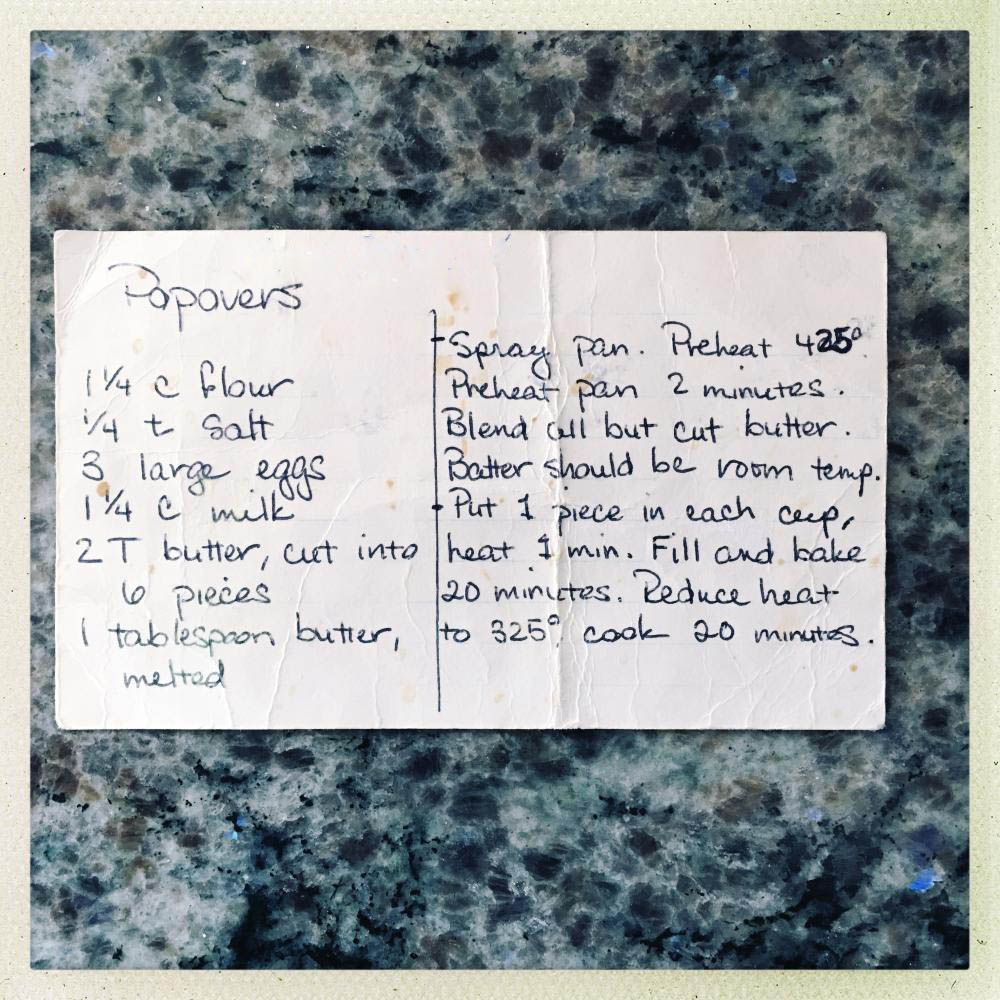 Popovers
1 1/4 c flour
1/4 t salt
3 large eggs
1 1/4 c milk
2 T butter, cut into
6 pieces
1 tablespoon butter,
melted
Spray pan. Preheat 425°.
Preheat pan 2 minutes.
Blend all but cut butter.
Batter should be room temp.
Put 1 piece in each cup,
heat 1 min. Fill and bake
20 minutes. Reduce heat
to 325°. cook 20 minutes.